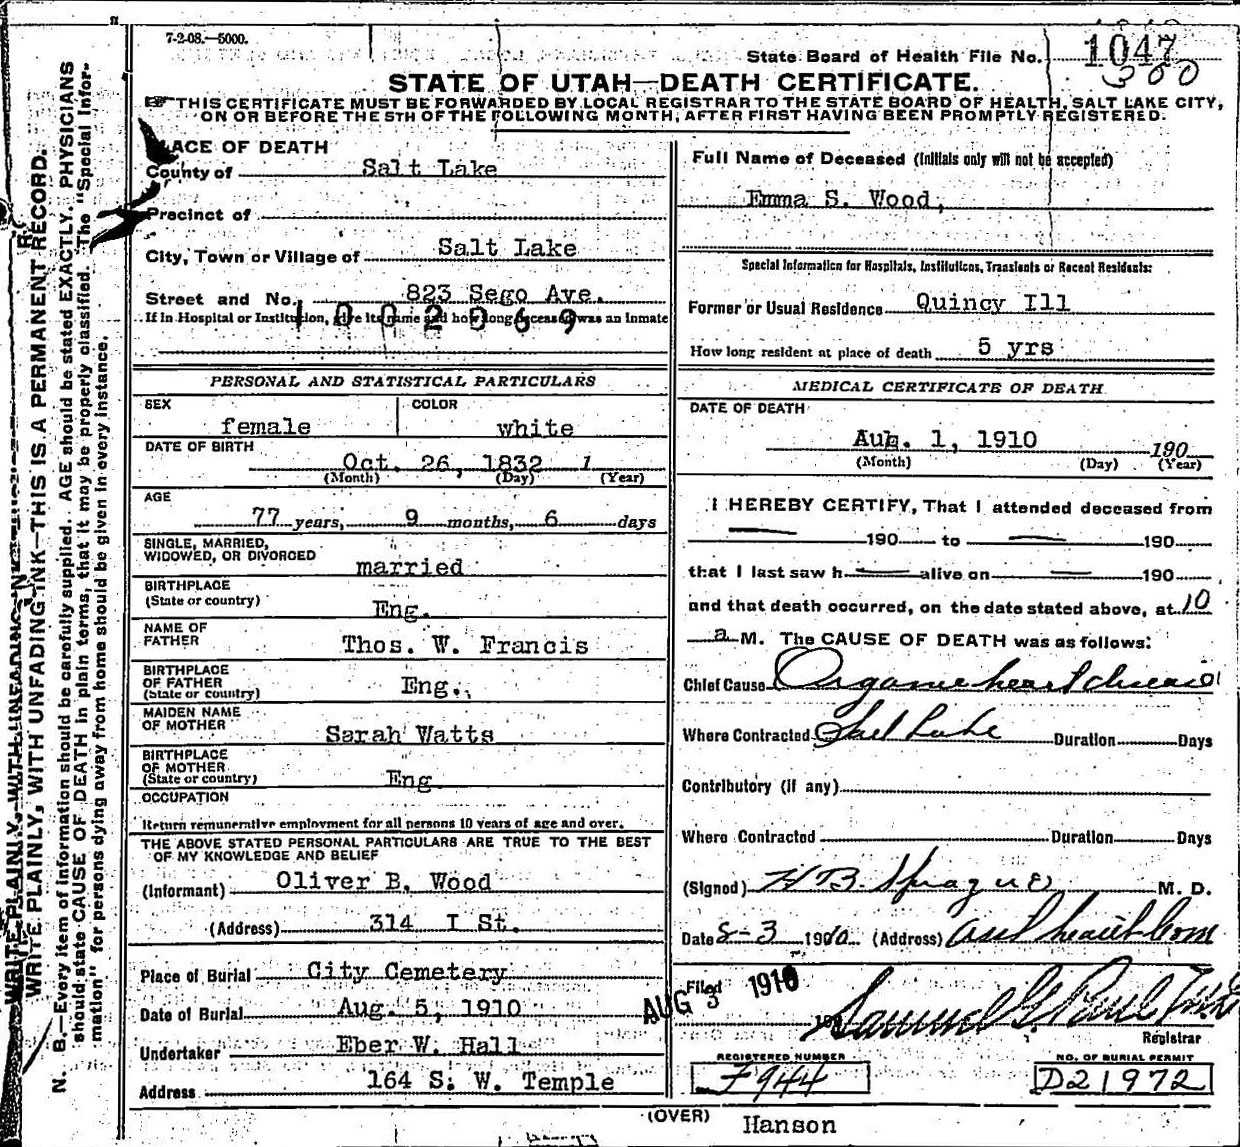 7-2-08.—5000.
State Board of Health File No. 1047
300
STATE OF UTAH—DEATH CERTIFICATE.
THIS CERTIFICATE MUST BE FORWARDED BY LOCAL REGISTRAR TO THE STATE BOARD OF HEALTH, SALT LAKE CITY,
ON OR BEFORE THE 5TH OF THE FOLLOWING MONTH, AFTER FIRST HAVING BEEN PROMPTLY REGISTERED.
WRITE PLAINLY, WITH UNFADING INK—THIS IS A PERMANENT RECORD.
N. B.—Every item of information should be carefully supplied. AGE should be stated EXACTLY. PHYSICIANS
should state CAUSE OF DEATH in plain terms, that it may be properly classified. The "Special Infor-
mation" for persons dying away from home should be given in every instance.
PLACE OF DEATH
County of Salt Lake
Precinct of
City, Town or Village of Salt Lake
Street and No. 823 Sego Ave.
If in Hospital or Institution, give its name and how long deceased was an inmate
1002069
PERSONAL AND STATISTICAL PARTICULARS
SEX COLOR
female white
DATE OF BIRTH
Oct. 26, 1832 1
(Month) (Day) (Year)
AGE
77 years, 9 months, 6 days
SINGLE, MARRIED,
WIDOWED, OR DIVORCED
married
BIRTHPLACE
(State or country)
Eng.
NAME OF
FATHER
Thos. W. Francis
BIRTHPLACE
OF FATHER
(State or country)
Eng.
MAIDEN NAME
OF MOTHER
Sarah Watts
BIRTHPLACE
OF MOTHER
(State or country)
Eng
OCCUPATION
Return remunerative employment for all persons 10 years of age and over.
THE ABOVE STATED PERSONAL PARTICULARS ARE TRUE TO THE BEST
OF MY KNOWLEDGE AND BELIEF
(Informant) Oliver B. Wood
(Address) 314 I St.
Place of Burial City Cemetery
Date of Burial Aug. 5, 1910
Undertaker Eber W. Hall
Address 164 S. W. Temple
Full Name of Deceased (Initials only will not be accepted)
Emma S. Wood,
Special Information for Hospitals, Institutions, Transients or Recent Residents:
Former or Usual Residence Quincy Ill
How long resident at place of death 5 yrs
MEDICAL CERTIFICATE OF DEATH
DATE OF DEATH
Aug. 1, 1910 190
(Month) (Day) (Year)
I HEREBY CERTIFY, That I attended deceased from
— 190 to — 190
that I last saw h — alive on — 190
and that death occurred, on the date stated above, at 10
a M. The CAUSE OF DEATH was as follows:
Chief Cause Organic heart disease
Where Contracted Salt Lake Duration Days
Contributory (if any)
Where Contracted Duration Days
(Signed) H B. Sprague M. D.
Date 8-3 1910 (Address) Asst health Com
Filed AUG 3 1910 190
Samuel G. Paul
Registrar
REGISTERED NUMBER
F944
NO. OF BURIAL PERMIT
D21972
(OVER)
Hanson